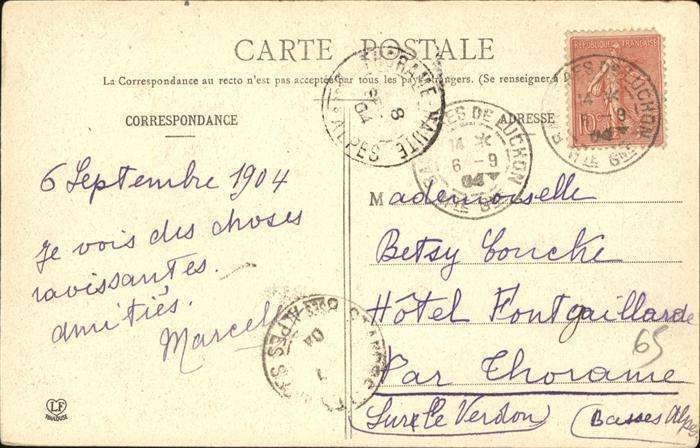 CARTE POSTALE
La Correspondance au recto n'est pas acceptée par tous les pays étrangers. (Se renseigner à
CORRESPONDANCE
ADRESSE
REPUBLIQUE FRANÇAISE
10
DE LUCHON
14
6 - 9
04
HTE GNE
DE LUCHON
14
6 - 9
04
THORAME-HAUTE
8
04
ALPES
6 Septembre 1904
Je vois des choses
ravissantes.
amitiés.
Marcell
Mademoiselle
Betsy Concke
Hôtel Fontgaillarde
65
Par Thorame
(Sur le Verdon) (Basses Alpes
ST ANDRE
ALPES
7
04
LF
TOULOUSE